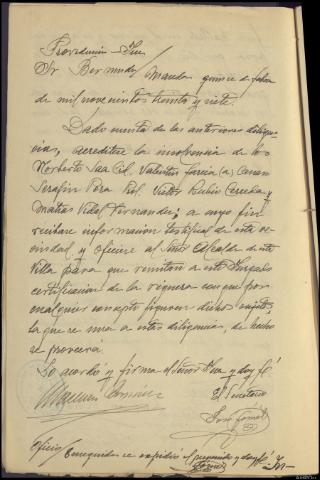 Providencia Juez
Sr Bermudez Mandeo quince de febrero
de mil novecientos treinta y siete.
Dada cuenta de las anteriores diligen-
cias, acreditese la insolvencia de los
Norberto Saa Cil, Valentin Garcia (a)
Serafin Pera Rol, Victor Rubio Cereda y
Matias Vidal Fernandez; a cuyo fin
recibase informacion testifical de esta ve-
cindad y oficiese al Señor Alcalde de esta
Villa para que remitan a este Juzgado
certificacion de la riqueza con que por
cualquier concepto figuren dichos sujetos,
la que se una a estas diligencias, de hecho
se proveera.
Lo acordó y firma el Señor Juez y doy fé
El Secretario
José Gomez
Oficio Enseguida se expidio el prevenido y doy fé
Gomez